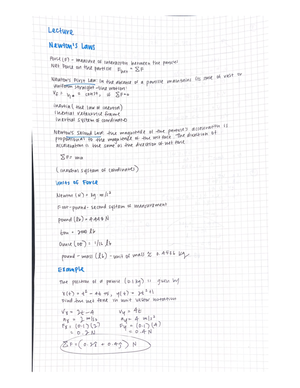 Lecture
Newton's Laws
Force (F) - measure of interaction between the
Net force on the particle Fnet = ΣF
Newton's First Law: In the absence of a particle maintains its state of rest or
uniform straight-line motion.
= const, if ΣF=0
inertia (the law of inertia)
Inertial reference frame
Inertial system of coordinates
Newton's Second Law: the magnitude of the particle's acceleration is
proportional to the magnitude of the net force. The direction of
acceleration is the same as the direction of net force
ΣF = ma
(inertial system of coordinates)
Units of Force
Newton (N) = kg m/s²
Foot-pound-second system of measurement
pound (lb) = 4.448 N
ton = 2000 lb
Ounce (oz) = 1/16 lb
pound-mass (lb) - unit of mass
Example
The position of a particle (0.1 kg) is given by:
x(t) = t² - 4t + , y(t) = 2t² + 1
Find the net force in unit vector notation
Vx = 2t - 4 Vy = 4t
ax = 2 m/s² ay = 4 m/s²
Fx = (0.1)(2) Fy = (0.1)(4)
= 0.2 N = 0.4 N
ΣF = (0.2i + 0.4j) N